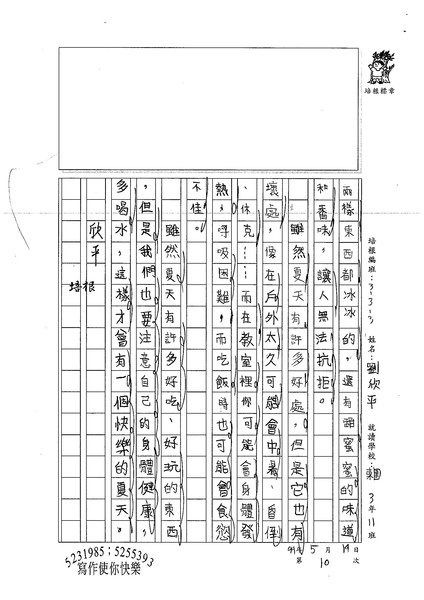 培根標章
培根編班:3-3-3 姓名:劉欣平 就讀學校: 3年11班
5月19日
第10次
兩樣東西都冰冰的,還有甜蜜蜜的味道
和香味,讓人無法抗拒。
雖然夏天有許多好處,但是它也有
壞處,像在戶外太久可能會中暑、昏倒
、休克……而在教室裡你可能會身體發
熱,呼吸困難,而吃飯時也可能會食慾
不佳。
雖然夏天有許多好吃、好玩的東西
,但是我們也要注意自己的身體健康,
多喝水,這樣才會有一個快樂的夏天。
欣平
培根
5231985;5255393
寫作使你快樂